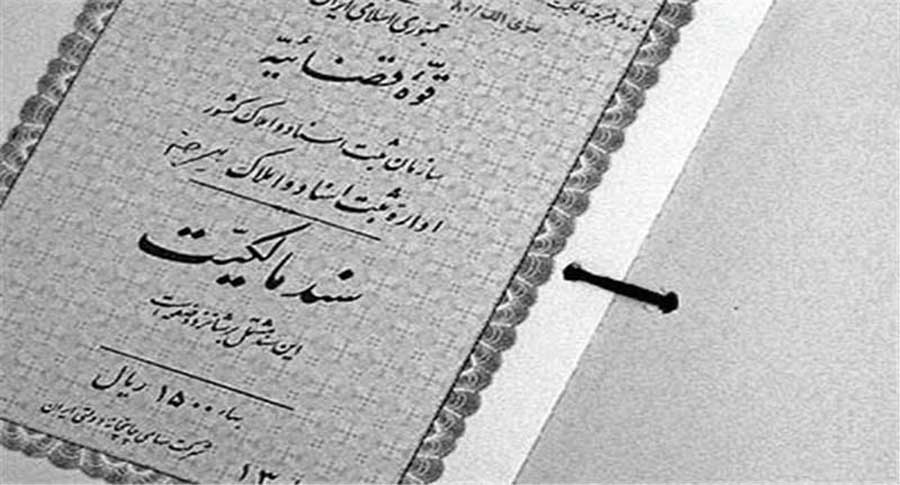 جمهوری اسلامی ایران
قوّهٔ قضائیّه
سازمان ثبت اسناد و املاک کشور
ادارهٔ ثبت اسناد و املاک بیرجند
سند مالکیّت
این سند مشتمل بر شانزده صفحه است
بهاء ۱۵۰۰ ریال
شرکت سهامی چاپخانه دولتی ایران
۱۳